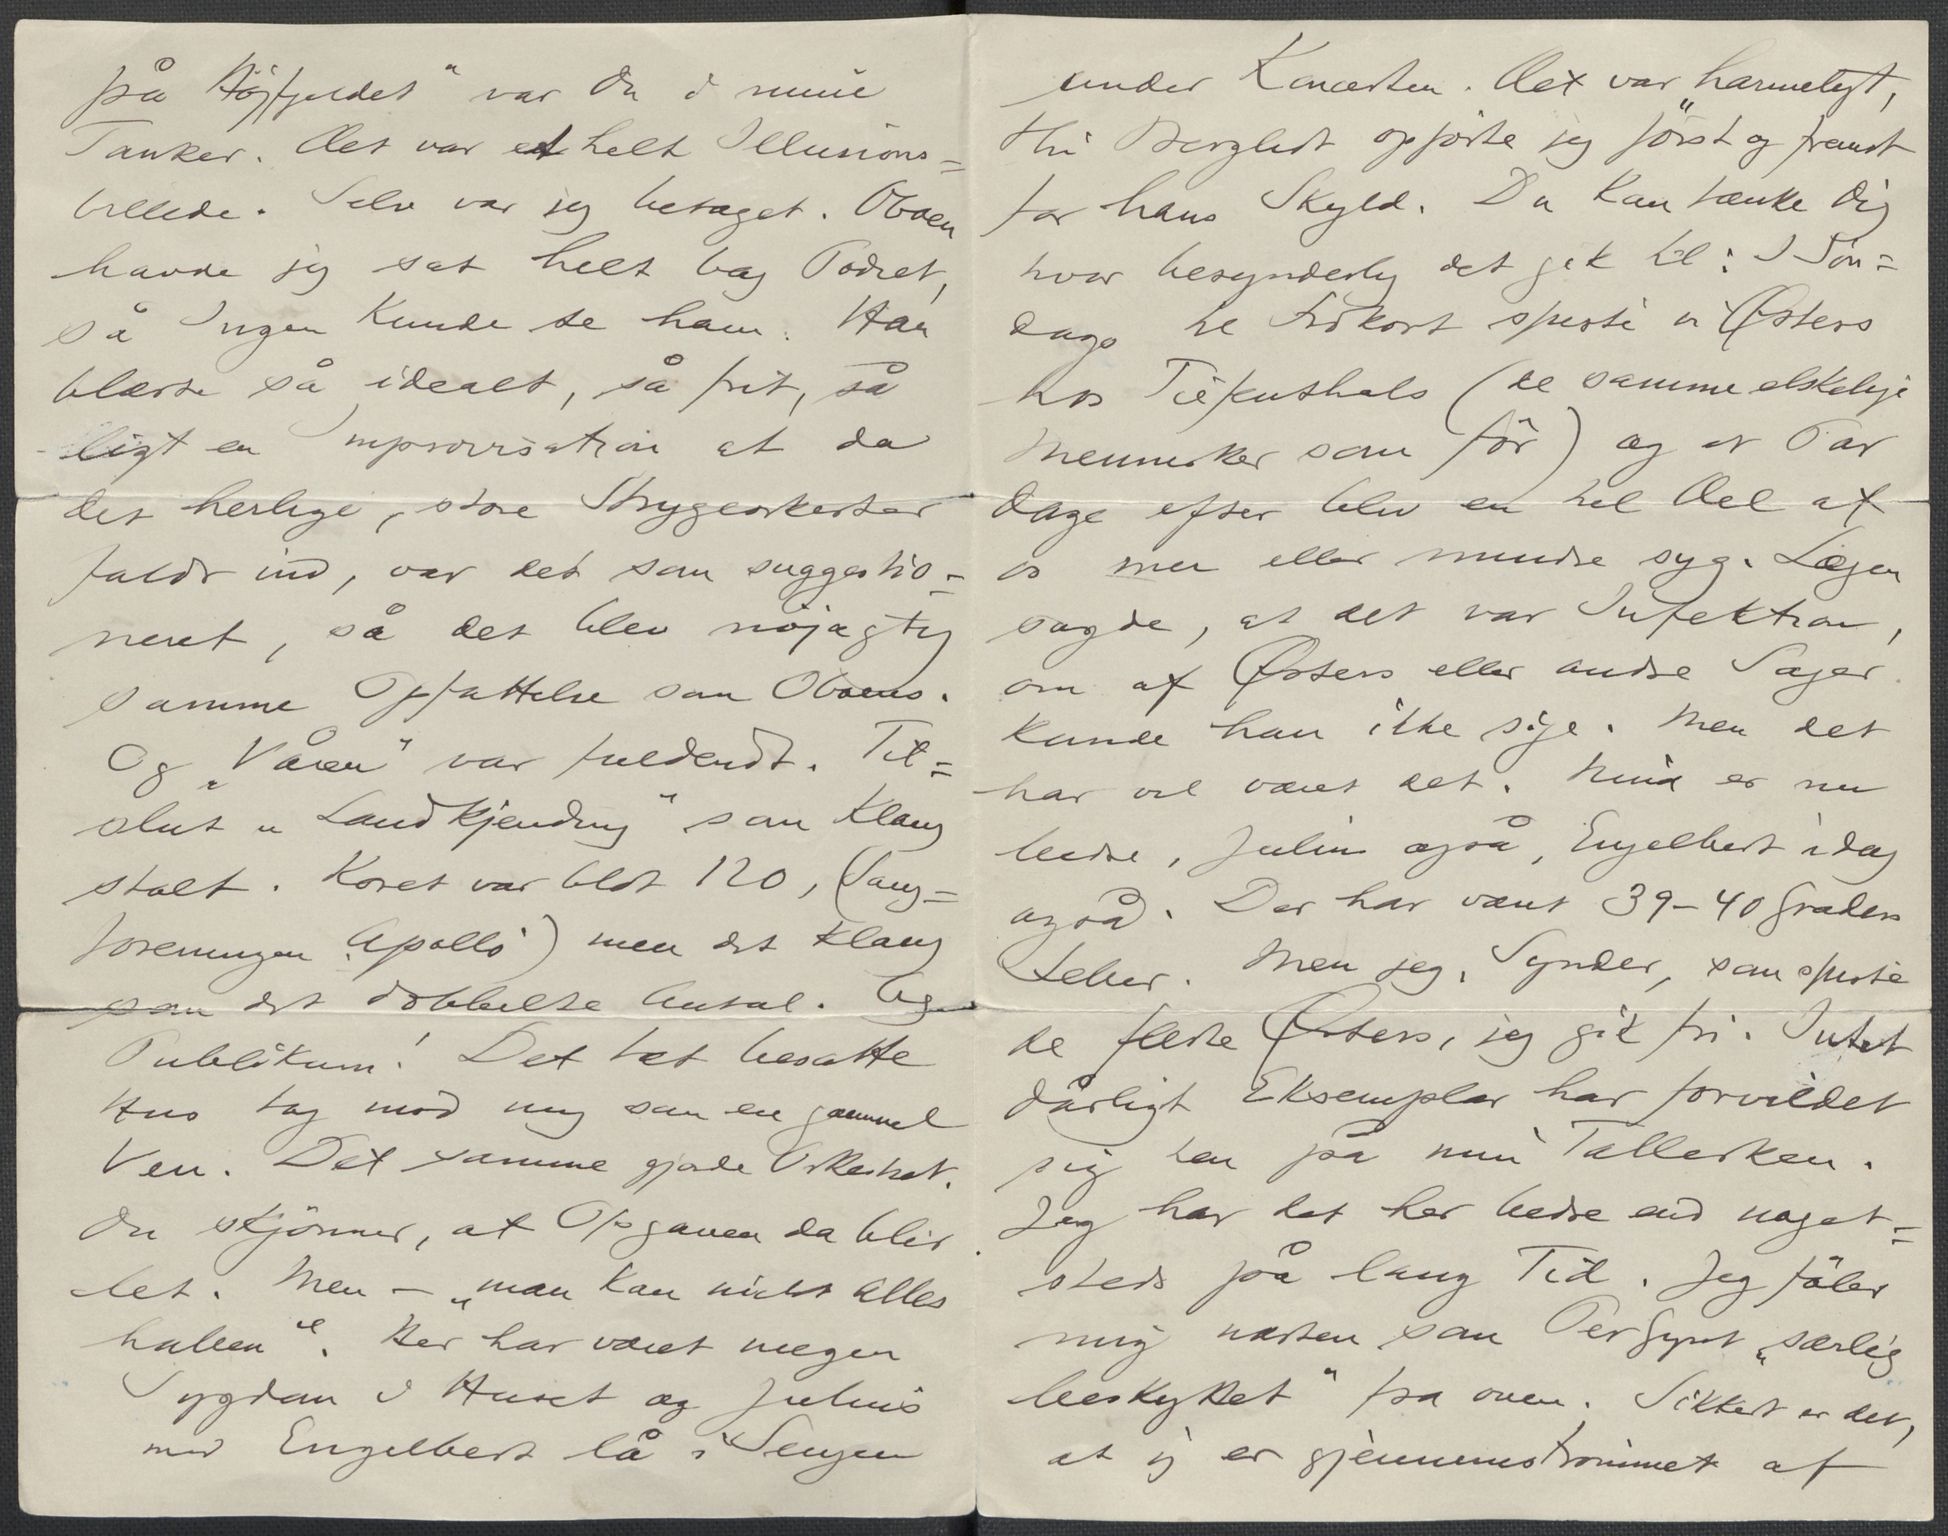 på Højfjeldet" var Du i mine
Tanker. Det var et helt Illusions=
billede. Selv var jeg betaget. Oboen
havde jeg sat helt bag Podiet,
så Ingen kunde se ham. Han
blæste så idealt, så frit, så
ligt en Improvisation at da
det herlige, store Strygeorkester
faldt ind, var det som suggestio=
neret, så det blev nøjagtig
samme Opfattelse som Oboens.
Og „Våren" var fuldendt. Til=
slut „Landkjending" som klang
stolt. Koret var blot 120, (Sang=
foreningen Apollo) men det klang
som det dobbelte Antal. Og
Publikum! Det tæt besatte
Hus tog mod mig som en gammel
Ven. Det samme gjorde Orkestret.
Du skjønner, at Opgaven da blir
let. Men – „man kan nicht alles
haben". Her har været megen
Sygdom i Huset og Julius
med Engelbert lå i Sengen
under Koncerten. Det var harmeligt,
thi Bergliot opførte jeg først og fremst
for hans Skyld. Du kan tænke Dig
hvor besynderlig det gik til: I Søn=
dags til Frokost spiste vi Østers
hos Tiefenthals (de samme elskelige
Mennesker som før) og et Par
Dage efter blev en hel Del af
os mer eller mindre syg. Lægen
sagde, at det var Infektion,
om af Østers eller andre Sager
kunde han ikke sige. Men det
har vel været det. Nina er nu
bedre, Julius også, Engelbert idag
også. Der har været 39–40 Graders
Feber. Men jeg, Synder, som spiste
de fleste Østers, jeg gik fri. Intet
dårligt Eksemplar har forvildet
sig hen på min Tallerken.
Jeg har det her bedre end noget=
steds på lang Tid. Jeg føler
mig næsten som Per Gynt „særlig
beskyttet" fra oven. Sikkert er det,
at jeg er gjennemstrømmet af